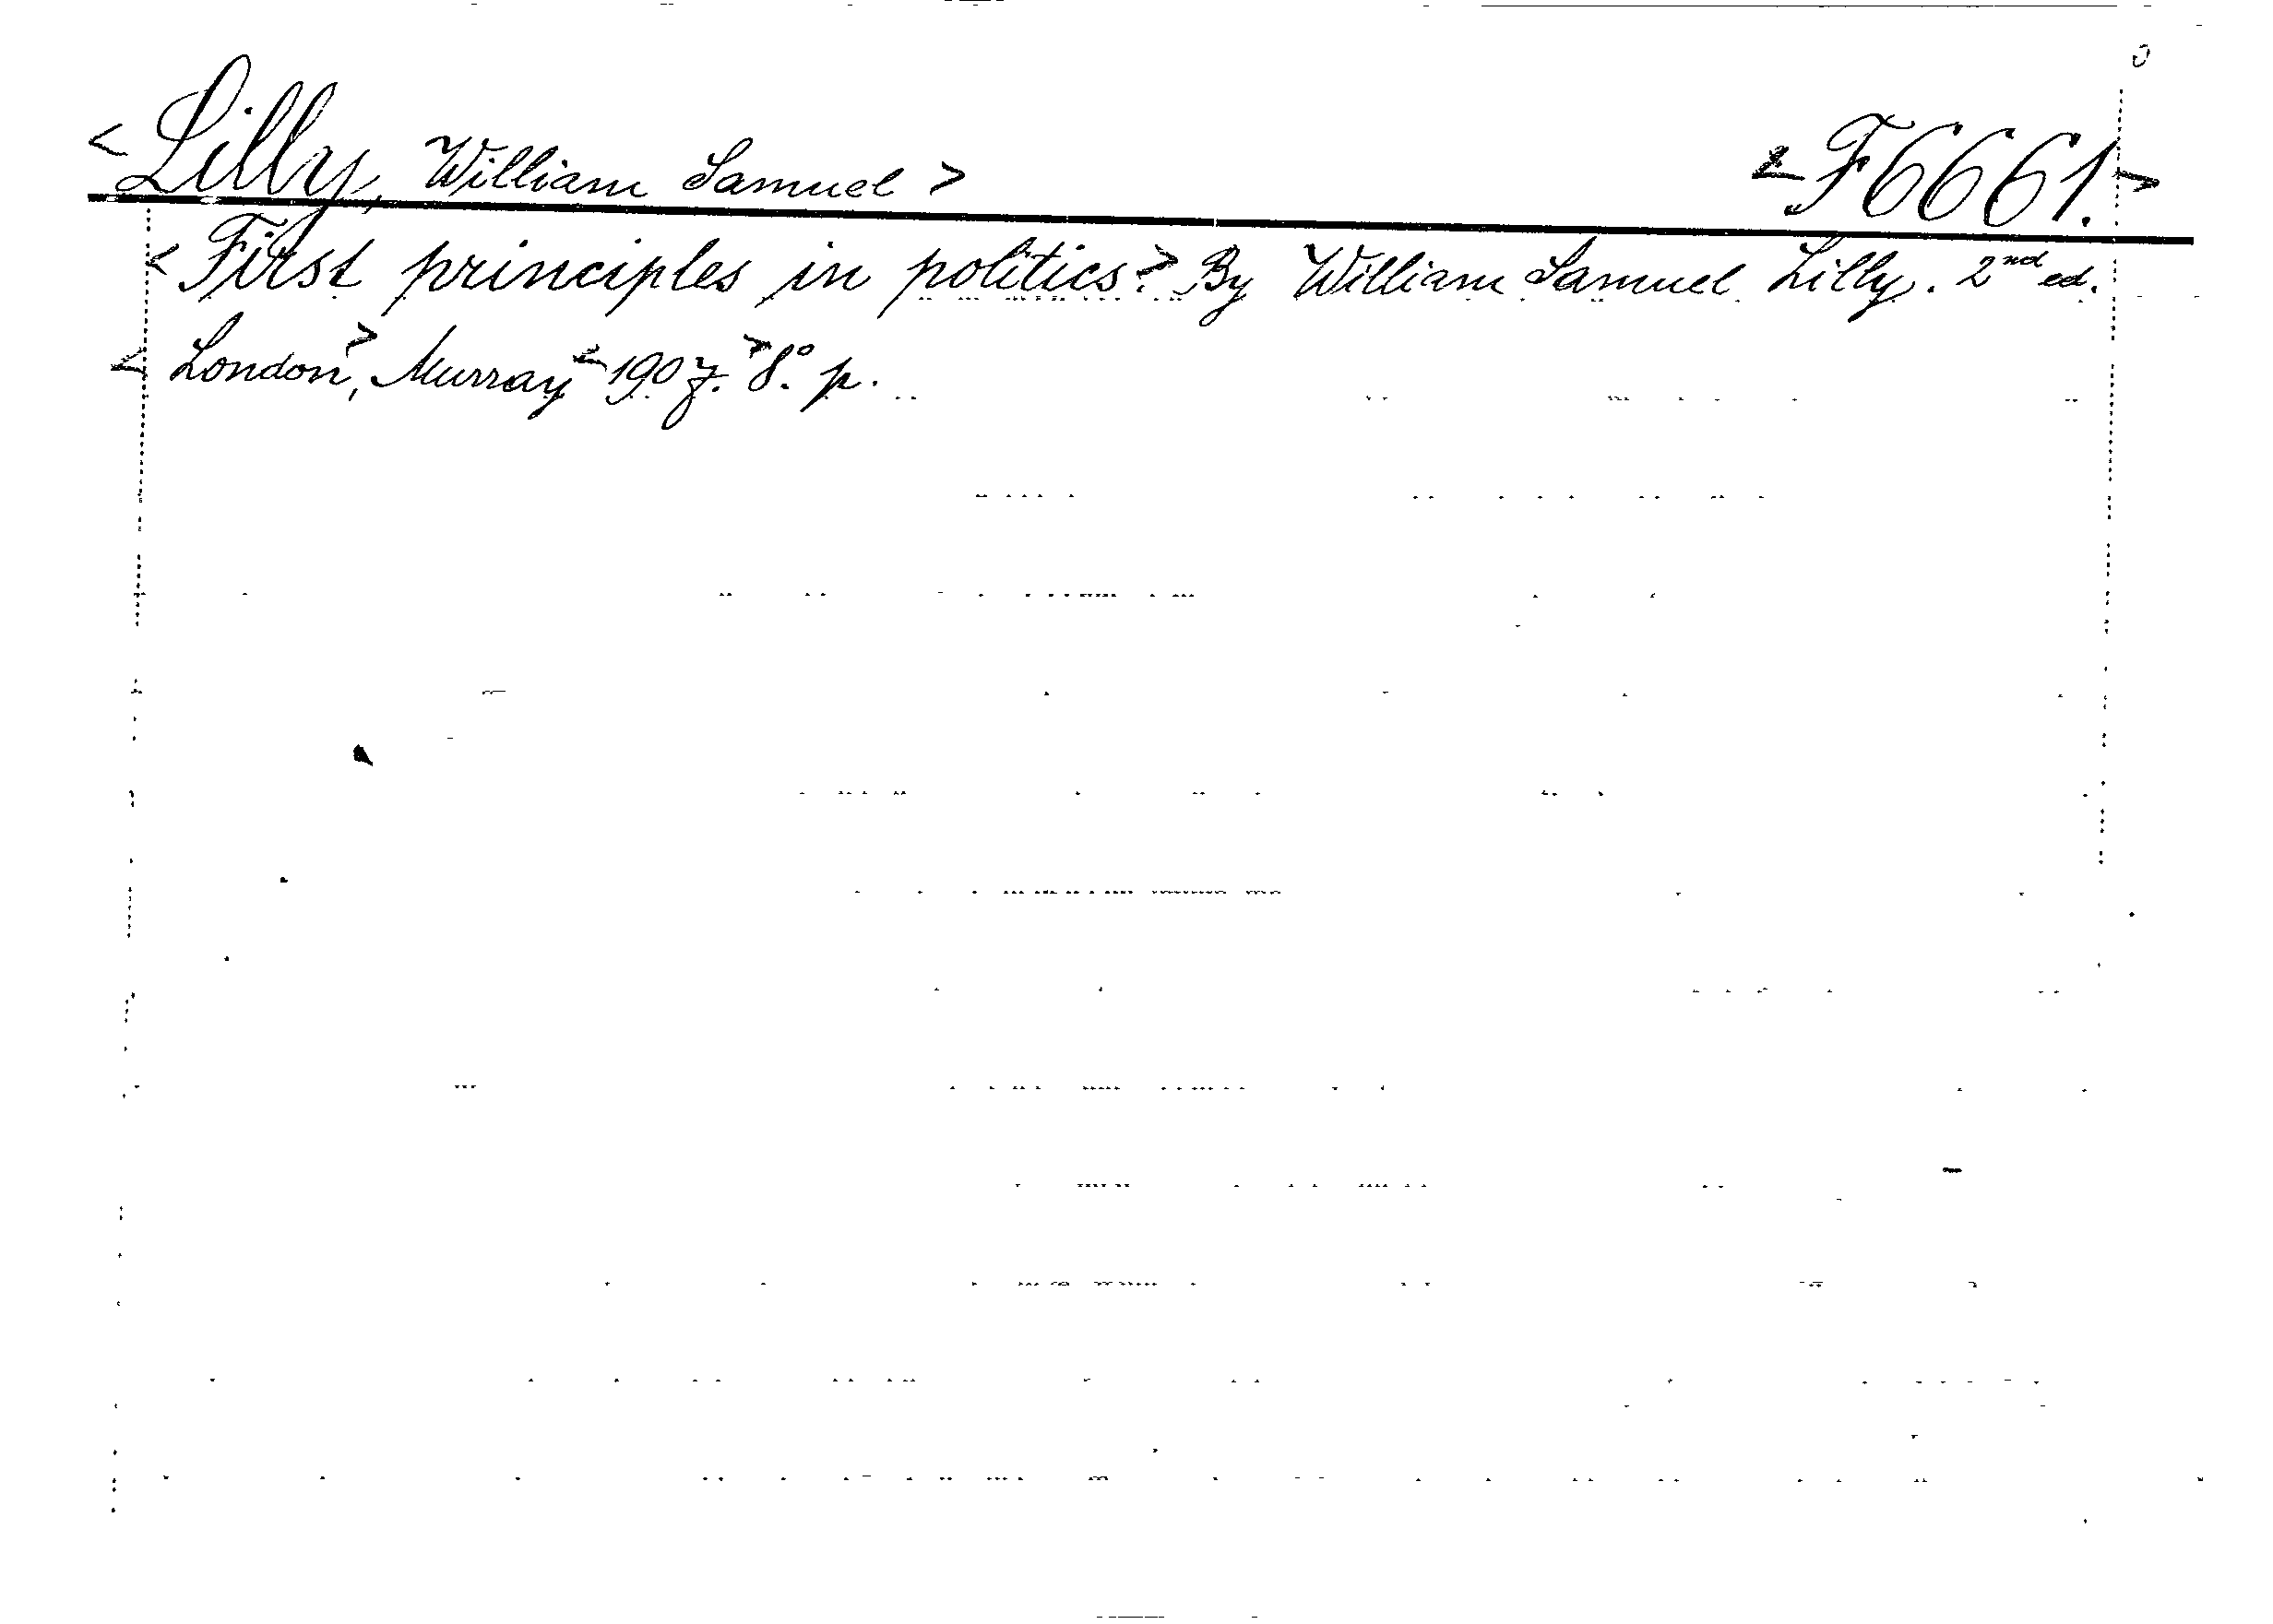 <Lilly, William Samuel> <F6661.>
<First principles in politics.> By William Samuel Lilly. 2nd ed.
<London>, Murray <1907.> 8° p.